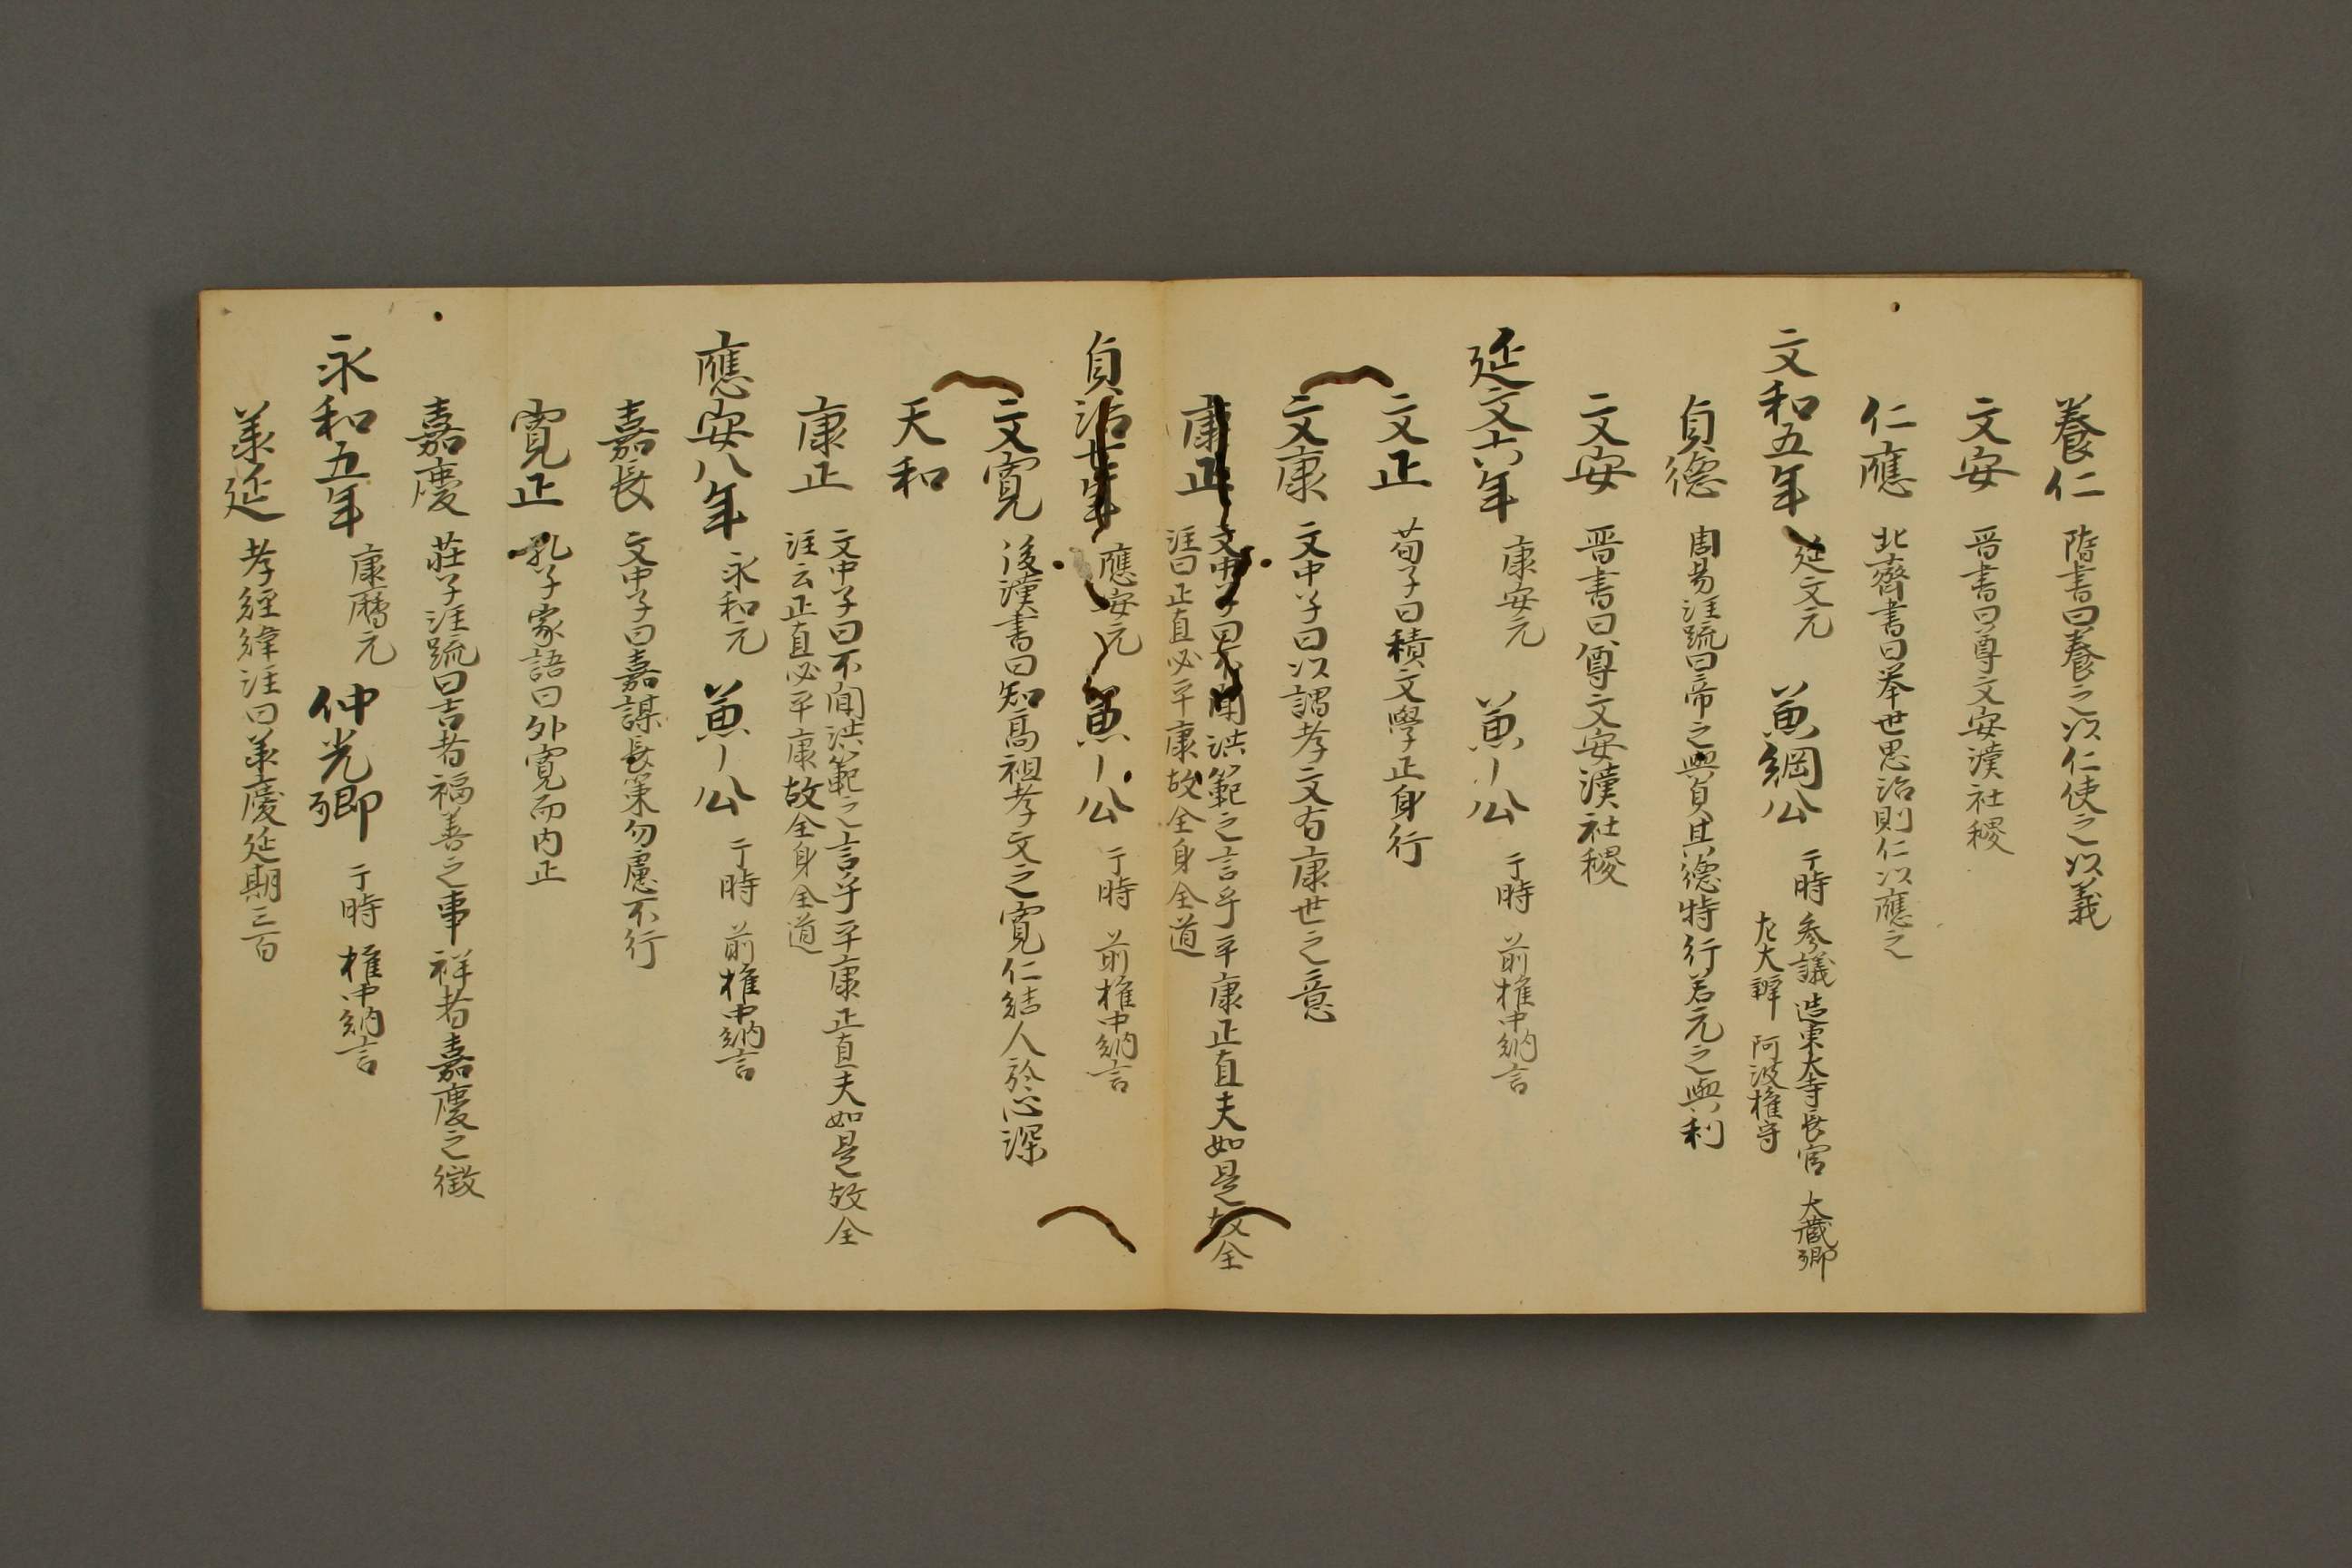 養仁 隋書曰養之以仁使之以義
文安 晋書曰尊文安漢社稷
仁應 北齊書曰举世思治則仁以應之
文和五年 延文元 兼綱公 于時 参議 造東大寺長官 大蔵卿
左大辨 阿波権守
貞德 周易注䟽曰帝之與貞其德特行若元之與利
文安 晋書曰尊文安漢社稷
延文六年 康安元 兼〡公 于時 前権中納言
文正 荀子曰積文學正身行
文康 文中子曰以謂孝文有康世之意
康正 文中子曰不聞洪範之言乎平康正直夫如是故全
注曰正直必平康故全身全道
貞治七年 應安元 兼〡公 于時 前権中納言
文寛 後漢書曰知高祖孝文之寛仁結人於心深
天和
康正 文中子曰不聞洪範之言乎平康正直夫如是故全
注云正直必平康故全身全道
應安八年 永和元 兼〡公 于時 前権中納言
嘉長 文中子曰嘉謀長策勿慮不行
寛正 孔子家語曰外寛而内正
嘉慶 荘子注䟽曰吉者福善之事 祥者嘉慶之徴
永和五年 康曆元 仲光卿 于時 権中納言
美延 孝經緯注曰美慶延期三百